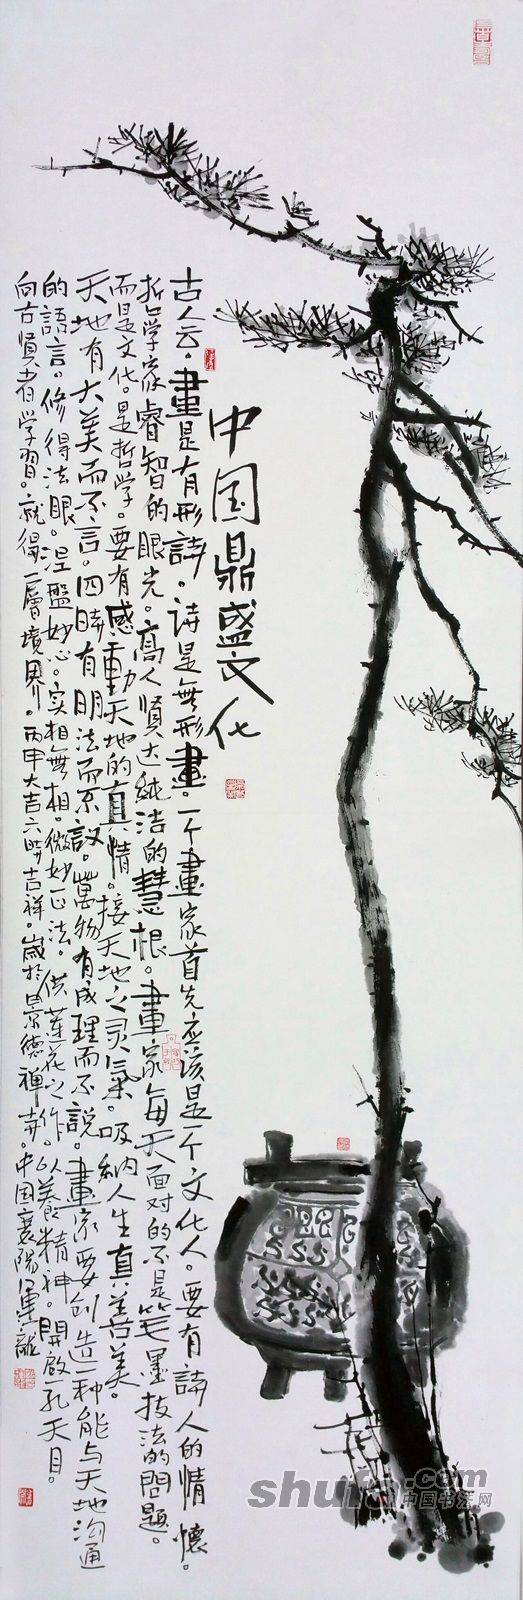 中国鼎盛文化
古人云。畫是有形詩。诗是無形畫。一个畫家首先应该是一个文化人。要有詩人的情懷。
哲学家睿智的眼光。高人贤达純洁的慧根。畫家每天面对的不是笔墨技法的問題。
而是文化。是哲学。要有感動天地的真情。接天地之灵氣。吸納人生真善美。
天地有大美而不言。四時有明法而不議。萬物有成理而不説。畫家要创造一种能与天地沟通
的語言。修得法眼。涅盤妙心。实相無相。微妙正法。供蓮花之作。以養精神。開啟一孔天目。
向古贤者学習。就得一層境界。丙申大吉六时吉祥。嵗於景德禅寺。中国襄陽
shufa.com
中国书法网